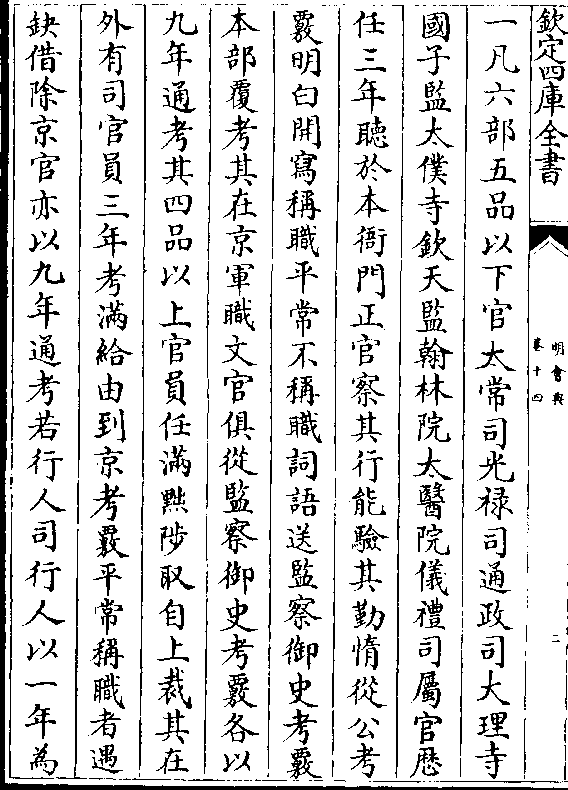 欽定四庫全書
明會典
卷十四
二
一凡六部五品以下官太常司光禄司通政司大理寺
國子監太僕寺欽天監翰林院太醫院儀禮司屬官歴
任三年聽於本衙門正官察其行能驗其勤惰從公考
覈明白開寫稱職平常不稱職詞語送監察御史考覈
本部覆考其在京軍職文官俱從監察御史考覈各以
九年通考其四品以上官員任滿黜陟取自上裁其在
外有司官員三年考滿給由到京考覈平常稱職者遇
缺借除京官亦以九年通考若行人司行人以一年為